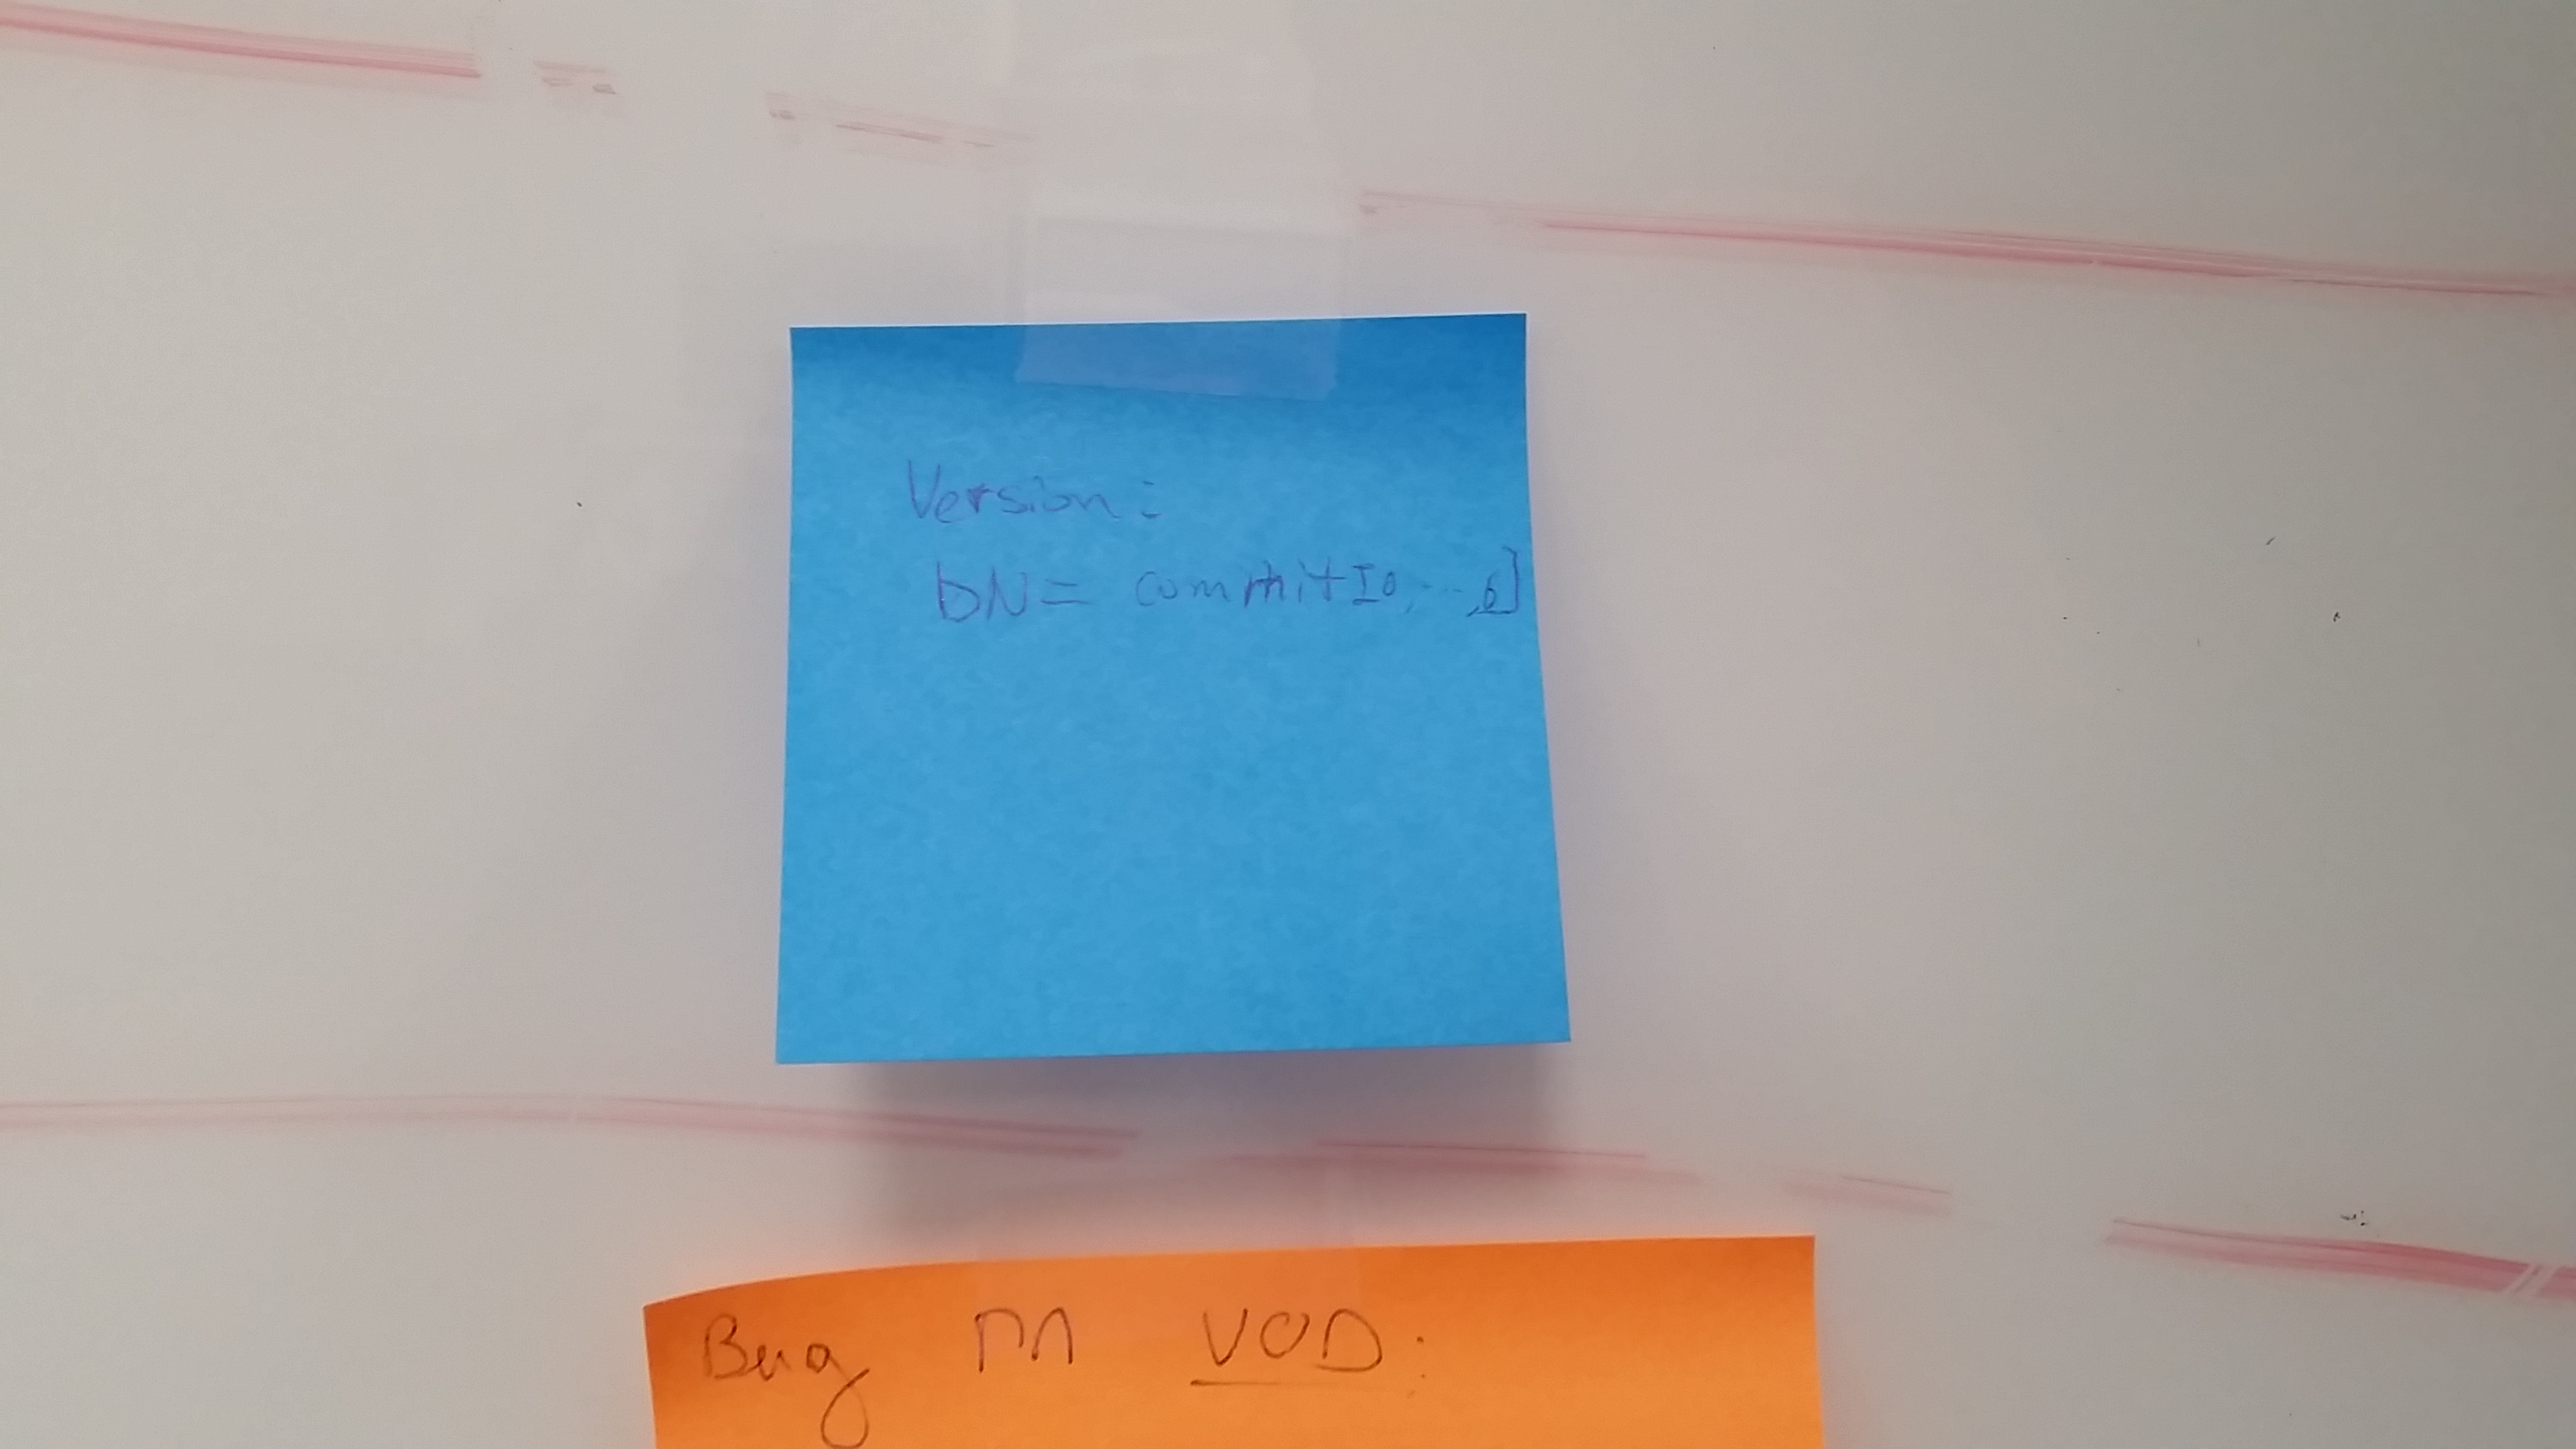 Version:
bN= commit[0,...,6]
Bug ПЛ VOD: